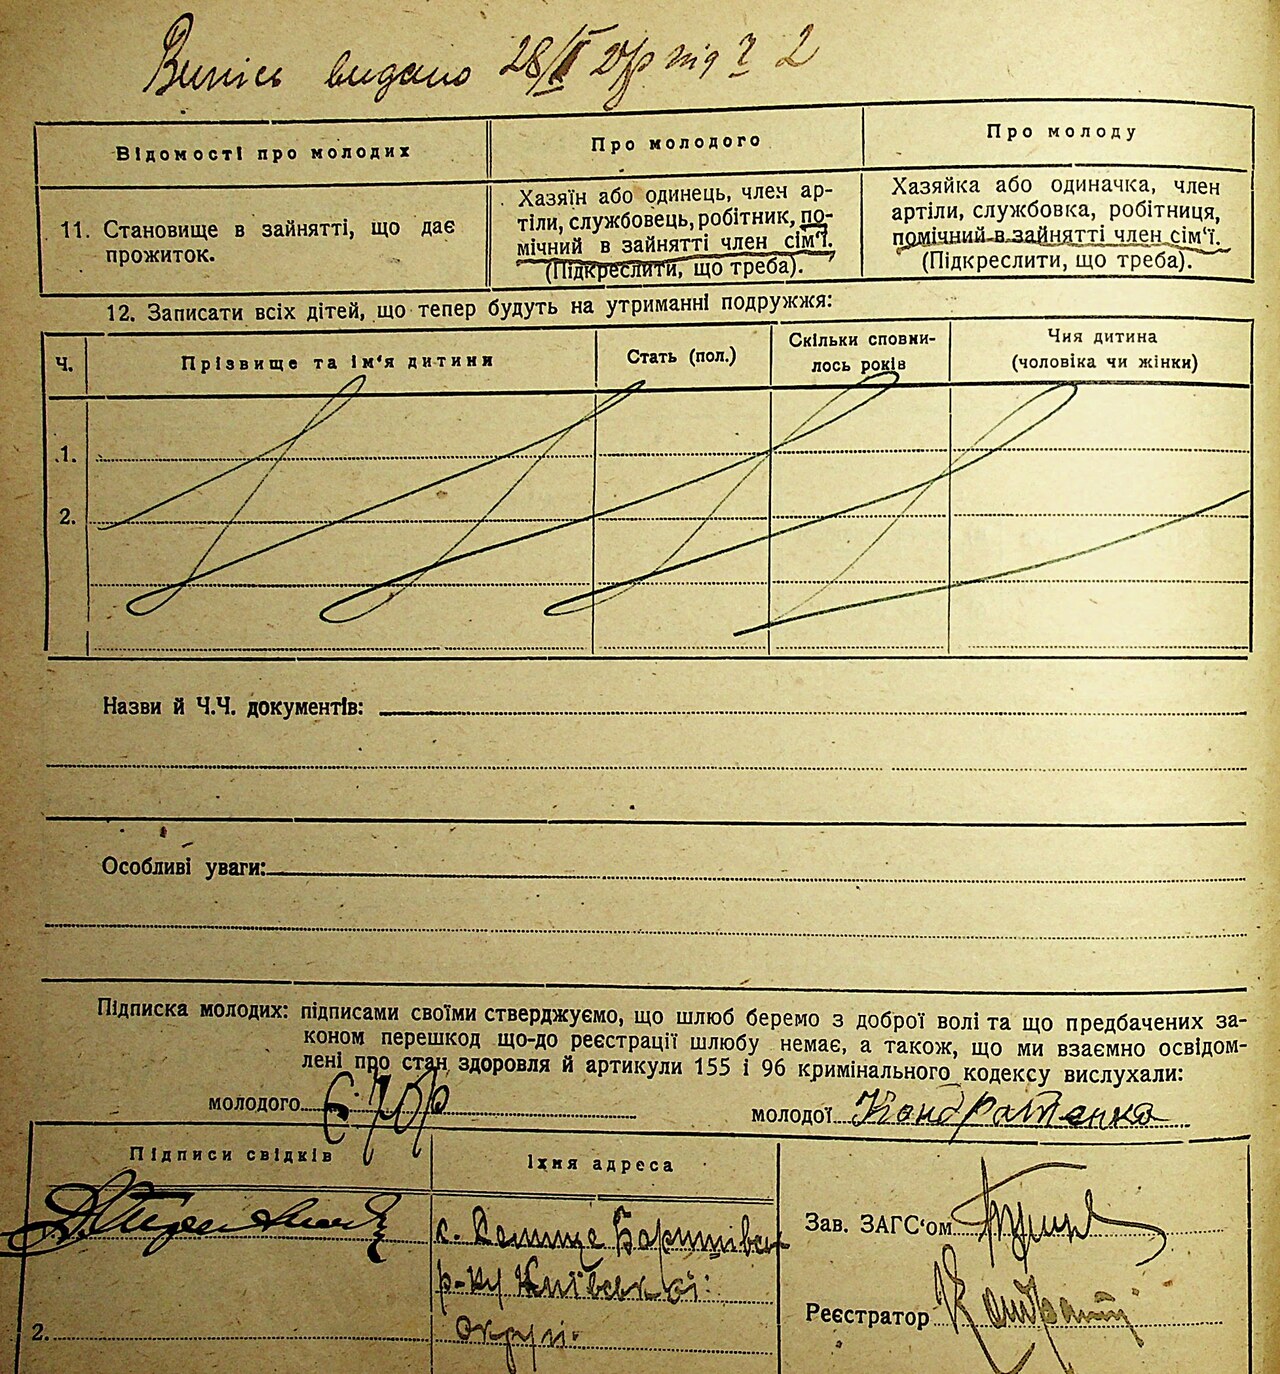 Випись видано 28/II 2/р під ч 2
Відомості про молодих
Про молодого
Про молоду
11. Становище в зайнятті, що дає
прожиток.
Хазяїн або одинець, член ар-
тіли, службовець, робітник, по-
мічний в зайнятті член сім'ї.
(Підкреслити, що треба).
Хазяйка або одиначка, член
артіли, службовка, робітниця,
помічний в зайнятті член сім'ї.
(Підкреслити, що треба).
12. Записати всіх дітей, що тепер будуть на утриманні подружжя:
Ч.
Прізвище та ім'я дитини
Стать (пол.)
Скільки сповни-
лось років
Чия дитина
(чоловіка чи жінки)
1.
2.
Назви й Ч.Ч. документів:
Особливі уваги:
Підписка молодих: підписами своїми стверджуємо, що шлюб беремо з доброї волі та що предбачених за-
коном перешкод що-до реєстрації шлюбу немає, а також, що ми взаємно освідом-
лені про стан здоровля й артикули 155 і 96 кримінального кодексу вислухали:
молодого
молодої Кондратенко
Підписи свідків
Їхня адреса
с. Селище Баришівськ
р-ку Київської
округи.
2.
Зав. ЗАГС'ом
Реєстратор